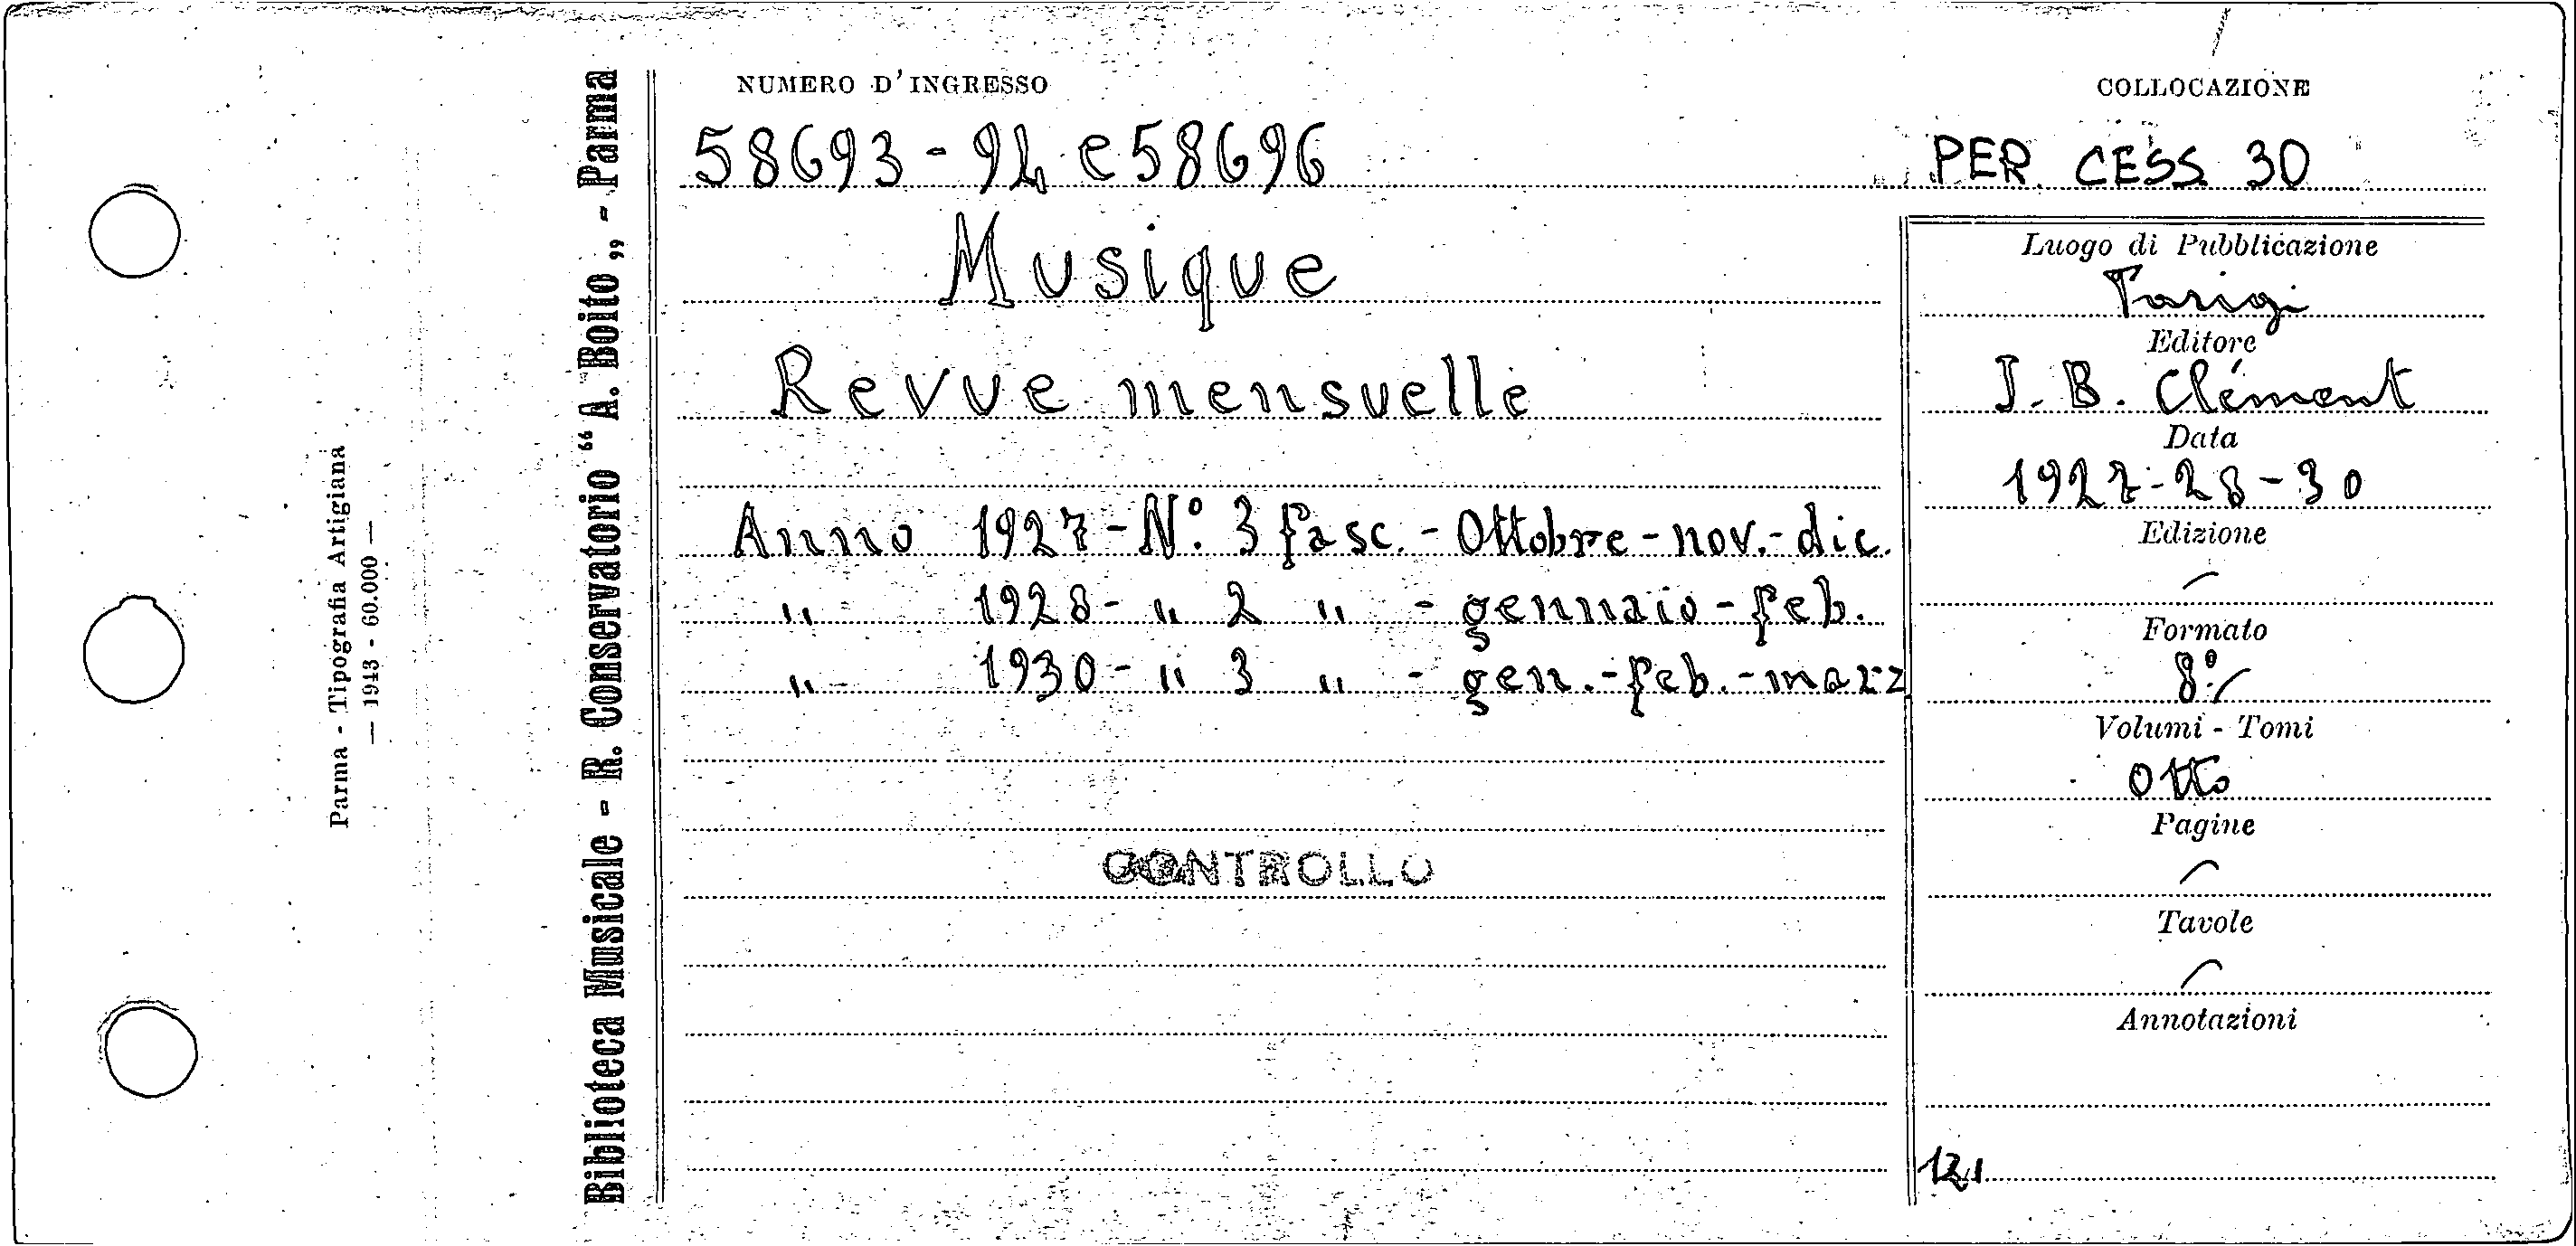 Parma - Tipografia Artigiana
— 1943 - 60.000 —
Biblioteca Musicale - R. Conservatorio “A. Boito„ - Parma
NUMERO D'INGRESSO
58693-94 e 58696
COLLOCAZIONE
PER CESS 30
Musique
Revue mensuelle
Anno 1927-N.º 3 fasc.-Ottobre-nov.-dic.
" 1928- " 2 " - gennaio-feb.
" 1930- " 3 " - gen.-feb.-marz
CONTROLLO
Luogo di Pubblicazione
Parigi
Editore
J. B. Clément
Data
1927-28-30
Edizione
Formato
8º
Volumi - Tomi
Otto
Pagine
Tavole
Annotazioni